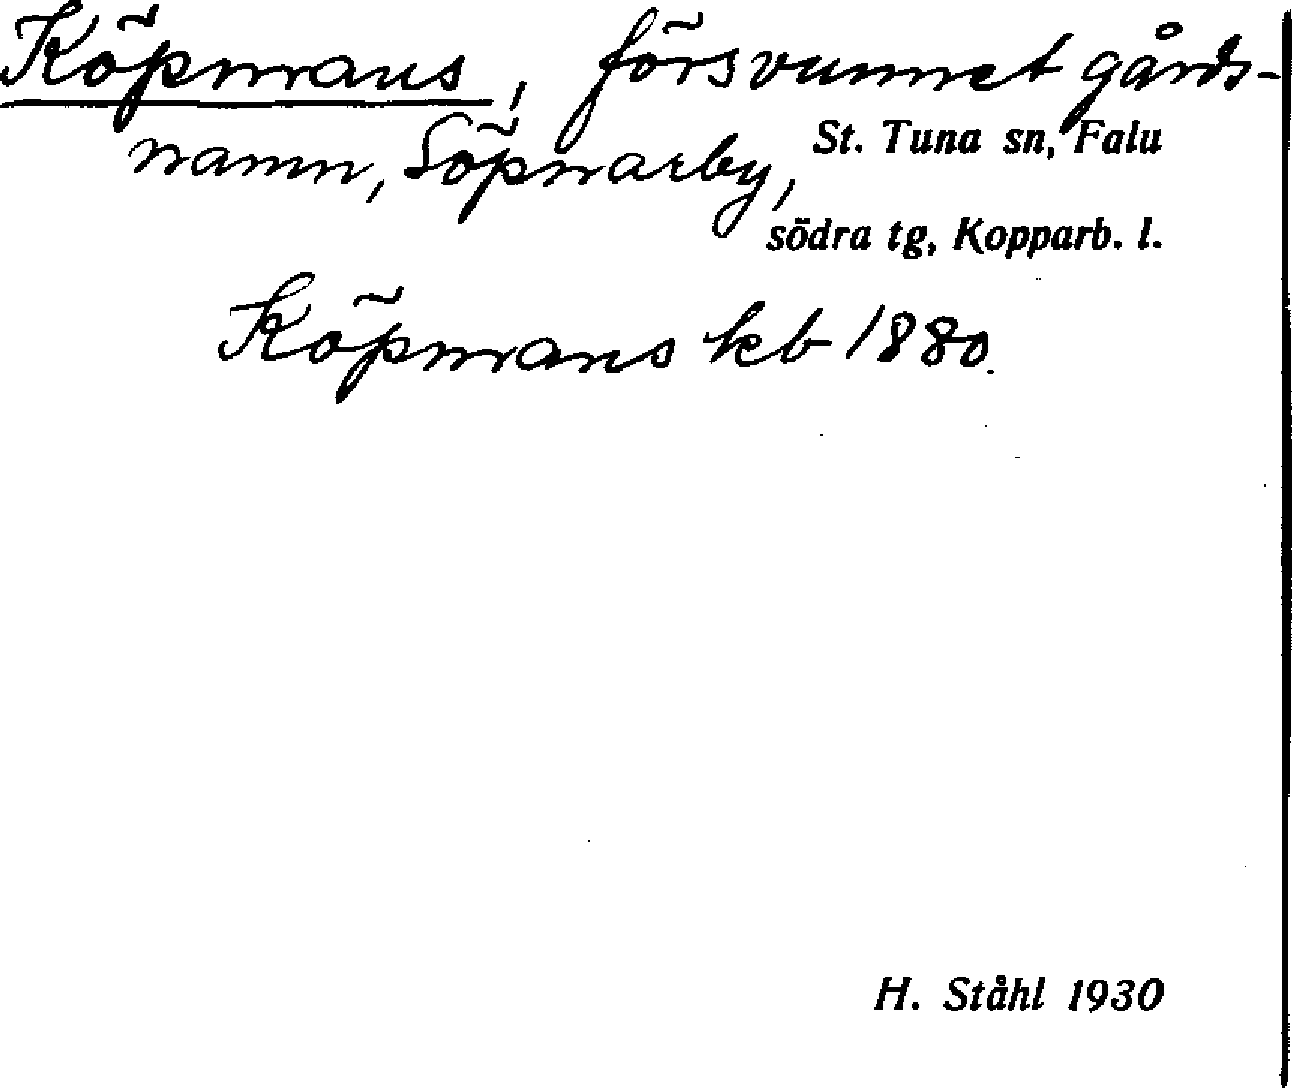 Köpmans, försvunnet gårds-
namn, Söpnarby, St. Tuna sn, Falu
södra tg, Kopparb. l.
Köpmans kb 1880.
H. Ståhl 1930